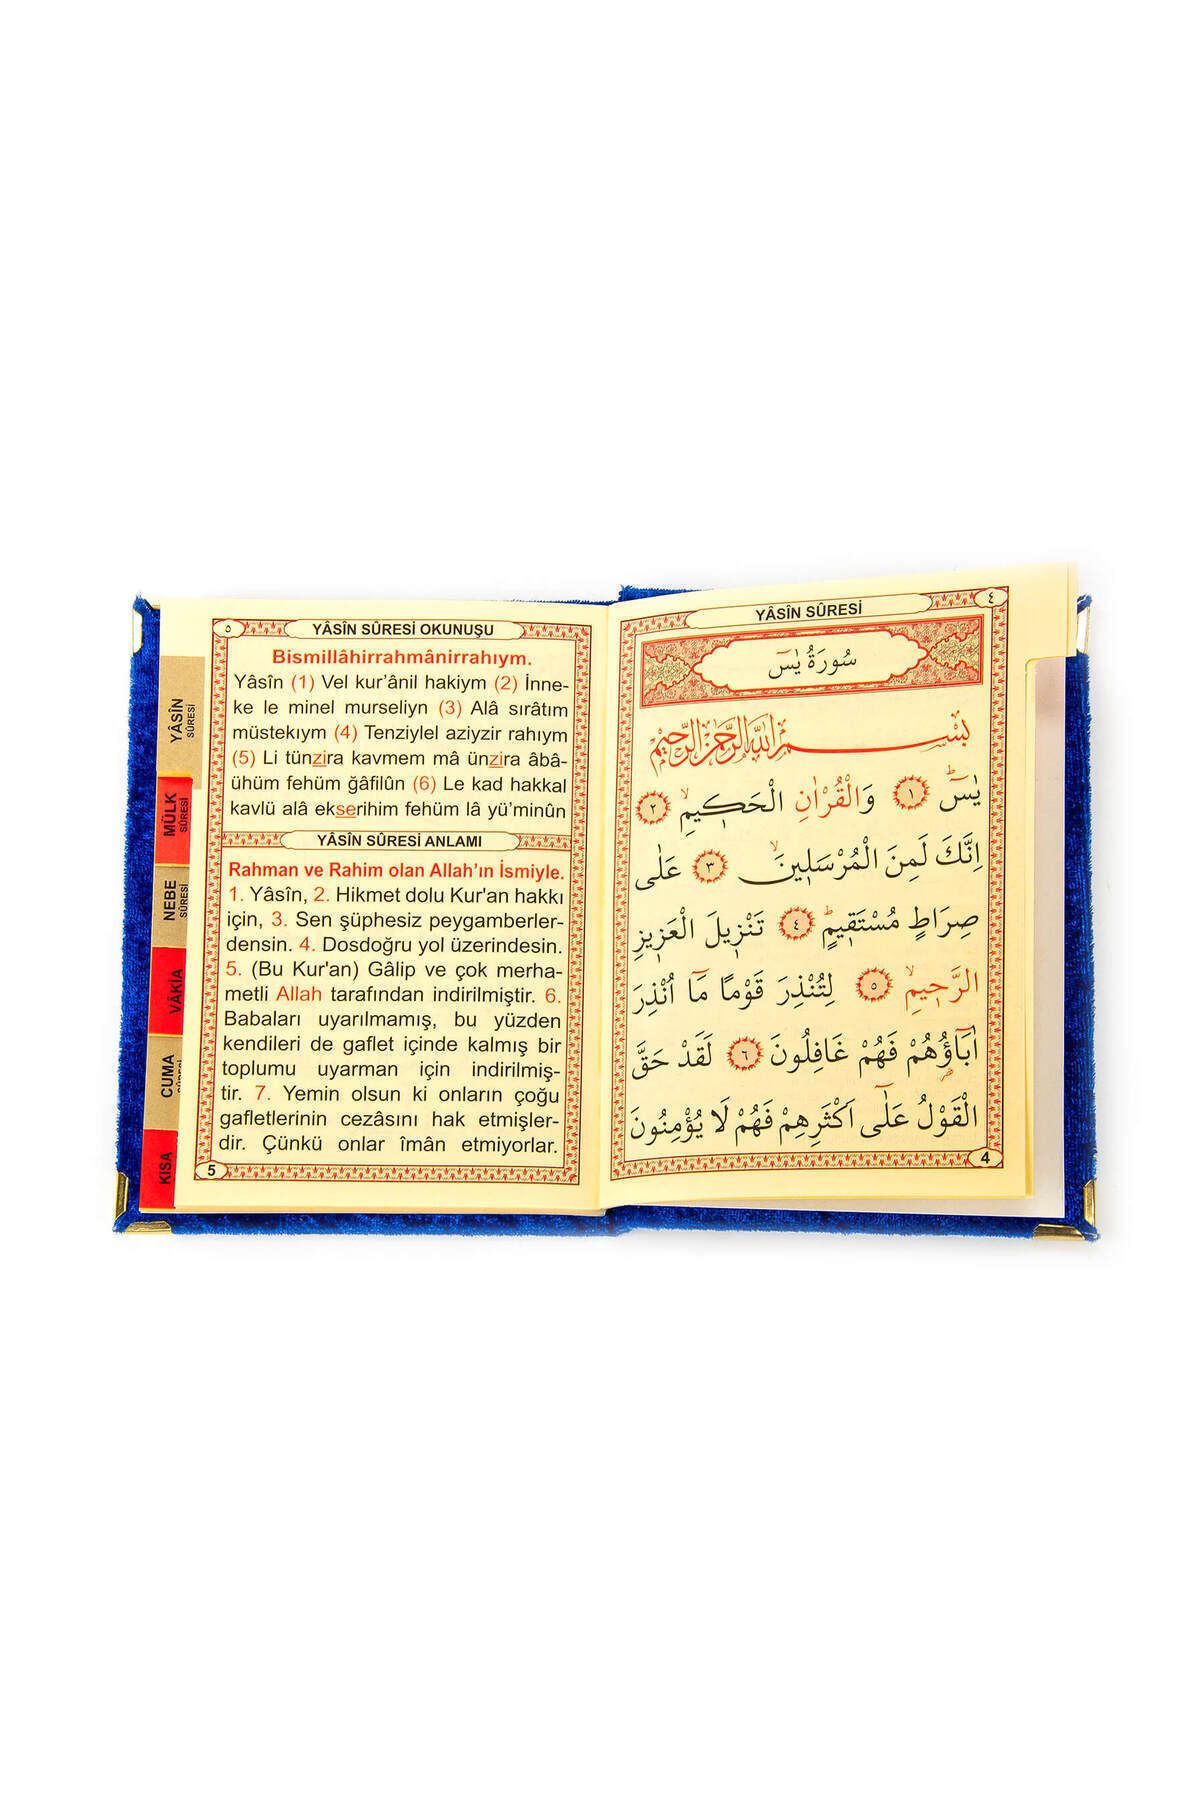 YÂSİN
SÛRESİ
MÜLK
SÛRESİ
NEBE
SÛRESİ
VÂKİA
CUMA
KISA
٥
YÂSÎN SÛRESİ OKUNUŞU
Bismillâhirrahmânirrahıym.
Yâsîn (1) Vel kur’ânil hakiym (2) İnne-
ke le minel murseliyn (3) Alâ sırâtım
müstekıym (4) Tenziylel aziyzir rahıym
(5) Li tünzira kavmem mâ ünzira âbâ-
ühüm fehüm ğâfilûn (6) Le kad hakkal
kavlü alâ ekserihim fehüm lâ yü’minûn
YÂSÎN SÛRESİ ANLAMI
Rahman ve Rahim olan Allah’ın İsmiyle.
1. Yâsîn, 2. Hikmet dolu Kur'an hakkı
için, 3. Sen şüphesiz peygamberler-
densin. 4. Dosdoğru yol üzerindesin.
5. (Bu Kur'an) Gâlip ve çok merha-
metli Allah tarafından indirilmiştir. 6.
Babaları uyarılmamış, bu yüzden
kendileri de gaflet içinde kalmış bir
toplumu uyarman için indirilmiş-
tir. 7. Yemin olsun ki onların çoğu
gafletlerinin cezâsını hak etmişler-
dir. Çünkü onlar îmân etmiyorlar.
5
٤
YÂSÎN SÛRESİ
سُورَةُ يٰسٓ
بِسْمِ اللّٰهِ الرَّحْمٰنِ الرَّحِيمِ
يٰسٓ ۚ ١ وَالْقُرْاٰنِ الْحَك۪يمِۙ ٢
اِنَّكَ لَمِنَ الْمُرْسَل۪ينَۙ ٣ عَلٰى
صِرَاطٍ مُسْتَق۪يمٍۜ ٤ تَنْز۪يلَ الْعَز۪يزِ
الرَّح۪يمِۙ ٥ لِتُنْذِرَ قَوْمًا مَٓا اُنْذِرَ
اٰبَٓاؤُ۬هُمْ فَهُمْ غَافِلُونَ ٦ لَقَدْ حَقَّ
الْقَوْلُ عَلٰٓى اَكْثَرِهِمْ فَهُمْ لَا يُؤْمِنُونَ
4